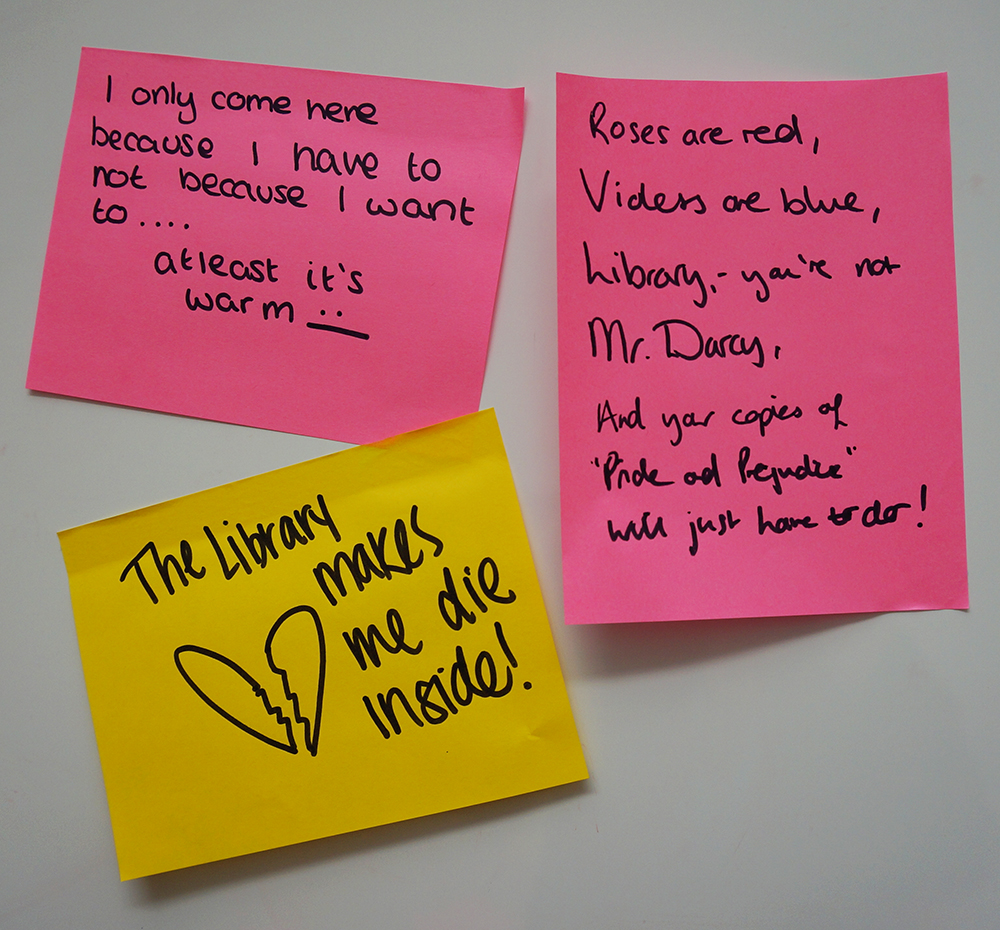 I only come here
because I have to
not because I want
to ....
atleast it's
warm
Roses are red,
Violets are blue,
Library,- you're not
Mr. Darcy,
And your copies of
"Pride and Prejudice"
will just have to do!
The Library
makes
me die
inside!